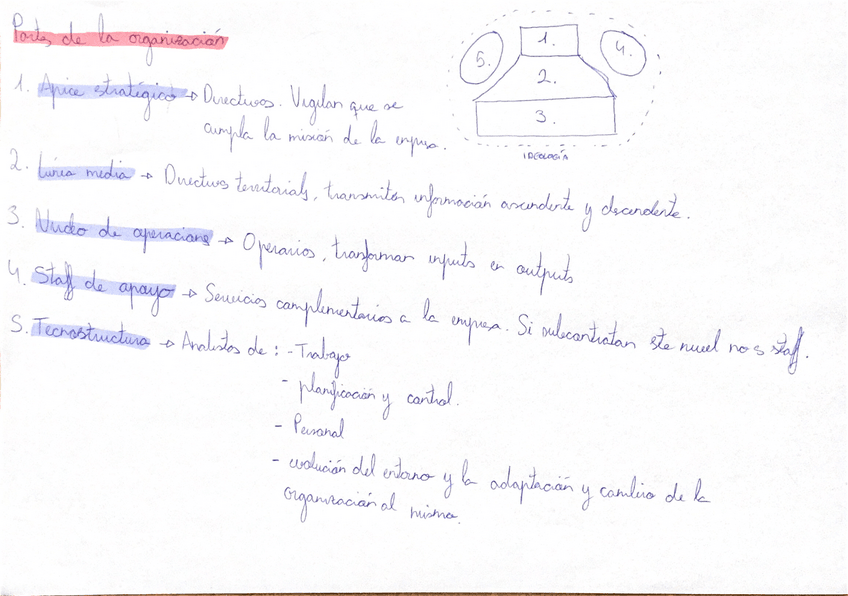 Partes de la organización
5. 1. 4.
2.
3.
IDEOLOGÍA
1. Apice estratégico → Directivos. Vigilan que se
cumpla la misión de la empresa.
2. Línea media → Directivos territoriales, transmiten información ascendente y descendente.
3. Nucleo de operaciones → Operarios, transforman inputs en outputs
4. Staff de apoyo → Servicios complementarios a la empresa. Si subcontratan este nivel no es staff.
5. Tecnostructura → Analistas de: - Trabajo
- planificación y control.
- Personal
- evolución del entorno y la adaptación y cambio de la
organización al mismo.